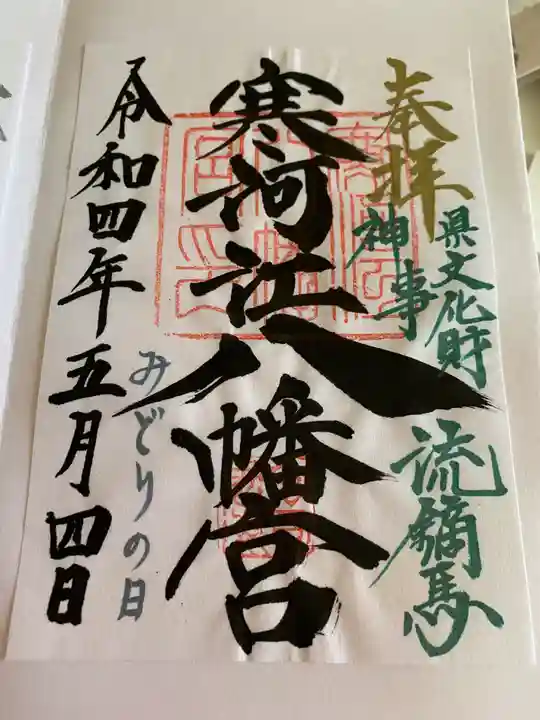 奉拝
県文化財
神事
流鏑馬
寒河江八幡宮
みどりの日
令和四年五月四日